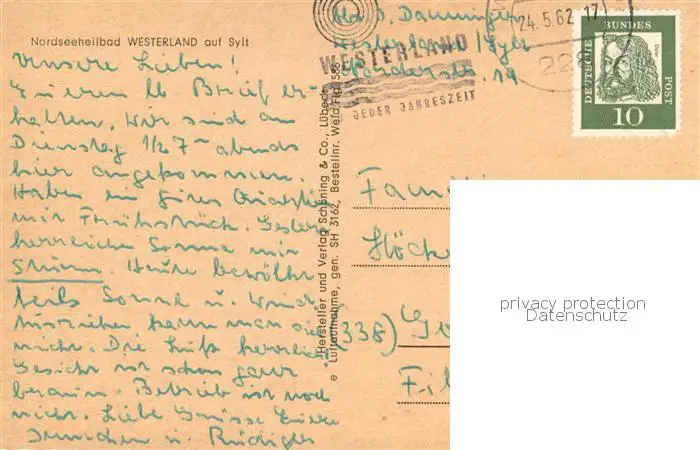 Nordseeheilbad WESTERLAND auf Sylt
Unsere Lieben!
Euren lb Brief er-
halten. Wir sind am
Dienstag 1/2 7 abends
hier angekommen.
Haben ein Quartier
mit Frühstück. Gestern
herrliche Sonne mit
Sturm. Heute bewölkt
teils Sonne u. Wind
Ausziehen kann man sich
nicht. Die Luft herrlich
Gesicht ist schon ganz
braun. Betrieb ist noch
nicht. Liebe Grüsse Eure
u. Rüdiger
Hersteller und Verlag Schöning & Co., Lübeck
e Luftaufnahme, gen. SH 3162, Bestellnr. Weld
Westerland/Sylt
WESTERLAND
JEDER JAHRESZEIT
24.5.62.17
DEUTSCHE BUNDES POST
Dürer
10
Fam
(338)
privacy protection
Datenschutz